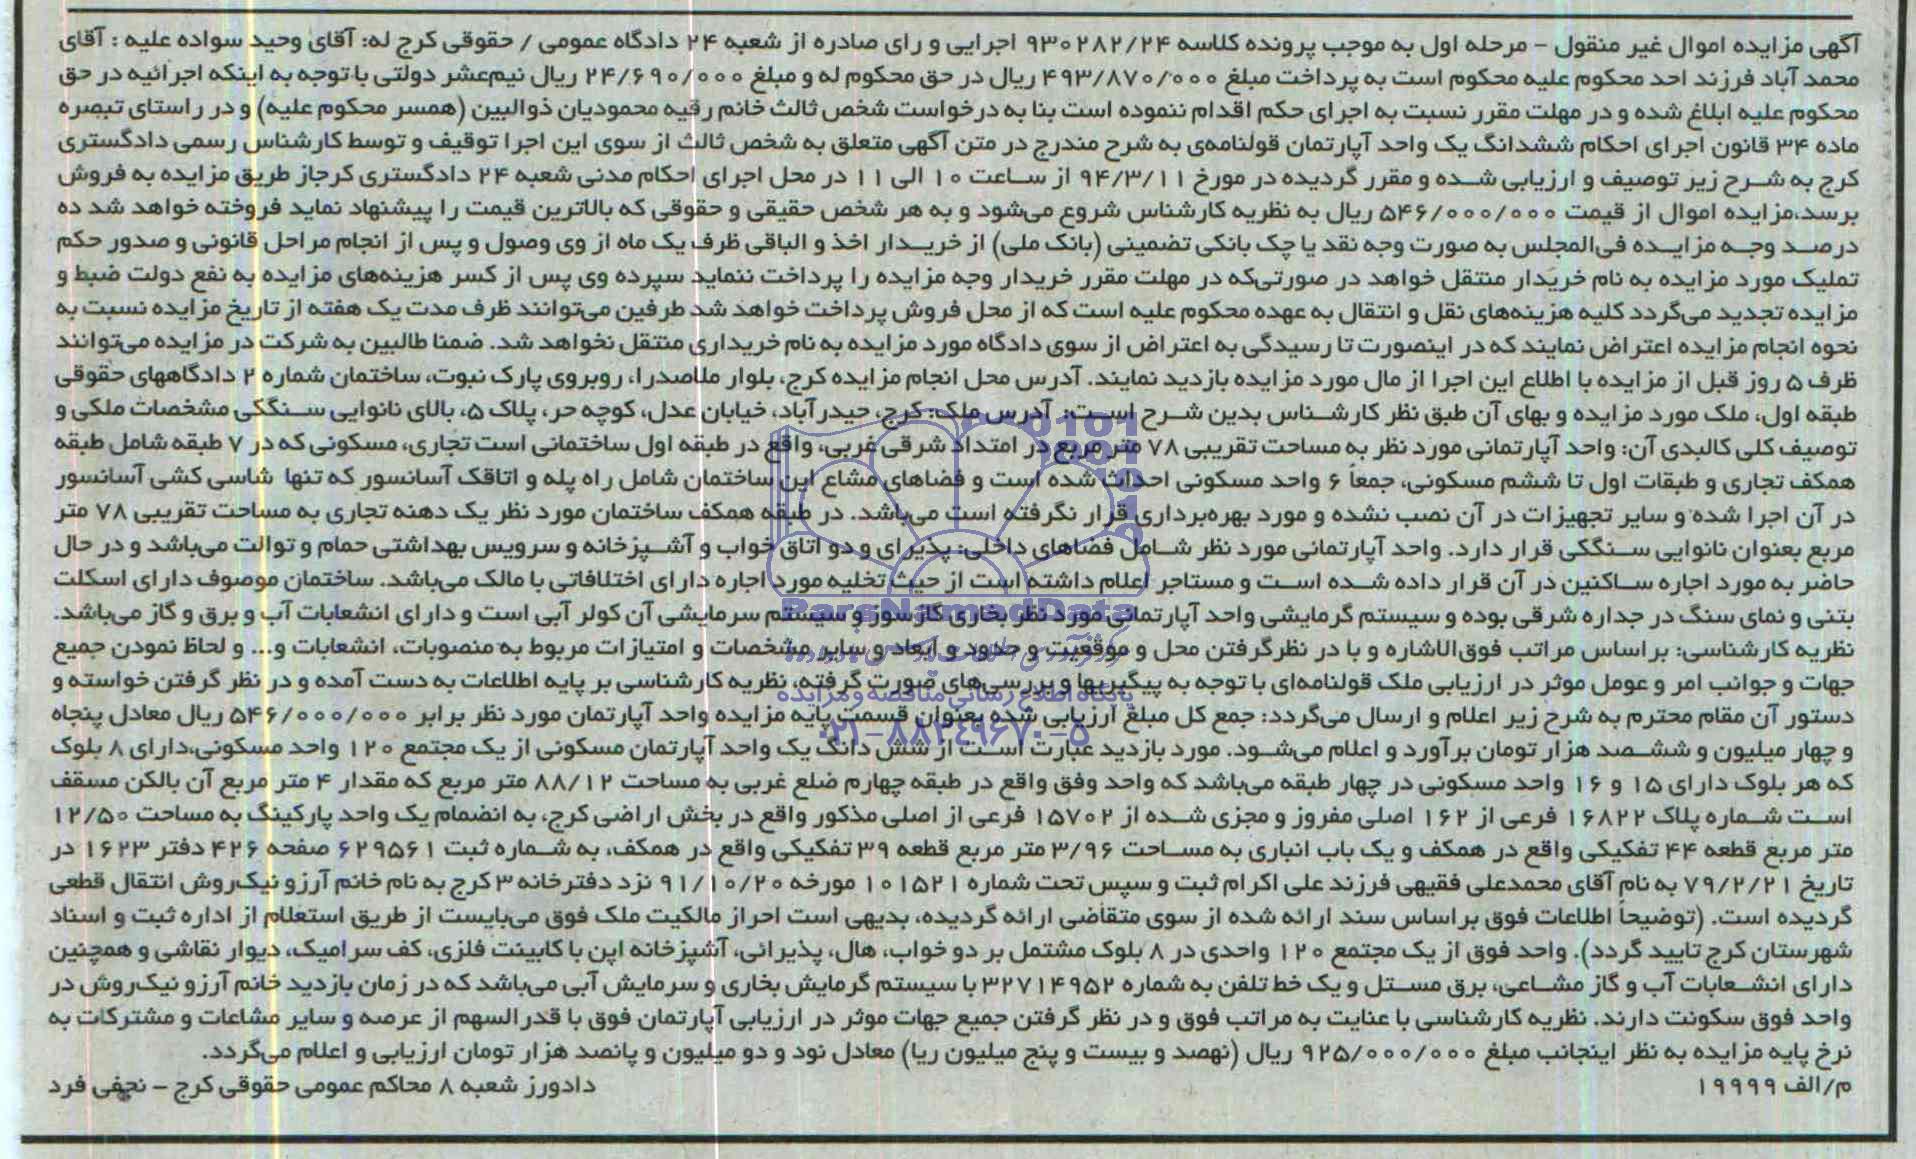 آگهی مزایده اموال غیر منقول – مرحله اول به موجب پرونده کلاسه ۹۳۰۲۸۲/۲۴ اجرایی و رای صادره از شعبه ۲۴ دادگاه عمومی / حقوقی کرج له: آقای وحید سواده علیه : آقای
محمد آباد فرزند احد محکوم علیه محکوم است به پرداخت مبلغ ۴۹۳/۸۷۰/۰۰۰ ریال در حق محکوم له و مبلغ ۲۴/۶۹۰/۰۰۰ ریال نیم‌عشر دولتی با توجه به اینکه اجرائیه در حق
محکوم علیه ابلاغ شده و در مهلت مقرر نسبت به اجرای حکم اقدام ننموده است بنا به درخواست شخص ثالث خانم رقیه محمودیان ذوالبین (همسر محکوم علیه) و در راستای تبصره
ماده ۳۴ قانون اجرای احکام ششدانگ یک واحد آپارتمان قولنامه‌ی به شرح مندرج در متن آگهی متعلق به شخص ثالث از سوی این اجرا توقیف و توسط کارشناس رسمی دادگستری
کرج به شرح زیر توصیف و ارزیابی شده و مقرر گردیده در مورخ ۹۴/۳/۱۱ از ساعت ۱۰ الی ۱۱ در محل اجرای احکام مدنی شعبه ۲۴ دادگستری کرجاز طریق مزایده به فروش
برسد،مزایده اموال از قیمت ۵۴۶/۰۰۰/۰۰۰ ریال به نظریه کارشناس شروع می‌شود و به هر شخص حقیقی و حقوقی که بالاترین قیمت را پیشنهاد نماید فروخته خواهد شد ده
درصد وجه مزایده فی‌المجلس به صورت وجه نقد یا چک بانکی تضمینی (بانک ملی) از خریدار اخذ و الباقی ظرف یک ماه از وی وصول و پس از انجام مراحل قانونی و صدور حکم
تملیک مورد مزایده به نام خریدار منتقل خواهد در صورتی‌که در مهلت مقرر خریدار وجه مزایده را پرداخت ننماید سپرده وی پس از کسر هزینه‌های مزایده به نفع دولت ضبط و
مزایده تجدید می‌گردد کلیه هزینه‌های نقل و انتقال به عهده محکوم علیه است که از محل فروش پرداخت خواهد شد طرفین می‌توانند ظرف مدت یک هفته از تاریخ مزایده نسبت به
نحوه انجام مزایده اعتراض نمایند که در اینصورت تا رسیدگی به اعتراض از سوی دادگاه مورد مزایده به نام خریداری منتقل نخواهد شد. ضمنا طالبین به شرکت در مزایده می‌توانند
ظرف ۵ روز قبل از مزایده با اطلاع این اجرا از مال مورد مزایده بازدید نمایند. آدرس محل انجام مزایده کرج، بلوار ملاصدرا، روبروی پارک نبوت، ساختمان شماره ۲ دادگاههای حقوقی
طبقه اول، ملک مورد مزایده و بهای آن طبق نظر کارشناس بدین شرح است: آدرس ملک: کرج، حیدرآباد، خیابان عدل، کوچه حر، پلاک ۵، بالای نانوایی سنگکی مشخصات ملکی و
توصیف کلی کالبدی آن: واحد آپارتمانی مورد نظر به مساحت تقریبی ۷۸ متر مربع در امتداد شرقی غربی، واقع در طبقه اول ساختمانی است تجاری، مسکونی که در ۷ طبقه شامل طبقه
همکف تجاری و طبقات اول تا ششم مسکونی، جمعاً ۶ واحد مسکونی احداث شده است و فضاهای مشاع این ساختمان شامل راه پله و اتاقک آسانسور که تنها شاسی کشی آسانسور
در آن اجرا شده و سایر تجهیزات در آن نصب نشده و مورد بهره‌برداری قرار نگرفته است می‌باشد. در طبقه همکف ساختمان مورد نظر یک دهنه تجاری به مساحت تقریبی ۷۸ متر
مربع بعنوان نانوایی سنگکی قرار دارد. واحد آپارتمانی مورد نظر شامل فضاهای داخلی: پذیرای و دو اتاق خواب و آشپزخانه و سرویس بهداشتی حمام و توالت می‌باشد و در حال
حاضر به مورد اجاره ساکنین در آن قرار داده شده است و مستاجر اعلام داشته است از حیث تخلیه مورد اجاره دارای اختلافاتی با مالک می‌باشد. ساختمان موصوف دارای اسکلت
بتنی و نمای سنگ در جداره شرقی بوده و سیستم گرمایشی واحد آپارتمانی مورد نظر بخاری گازسوز و سیستم سرمایشی آن کولر آبی است و دارای انشعابات آب و برق و گاز می‌باشد.
نظریه کارشناسی: براساس مراتب فوق‌الاشاره و با در نظرگرفتن محل و موقعیت و حدود و ابعاد و سایر مشخصات و امتیازات مربوط به منصوبات، انشعابات و... و لحاظ نمودن جمیع
جهات و جوانب امر و عومل موثر در ارزیابی ملک قولنامه‌ای با توجه به پیگیریها و بررسی‌های صورت گرفته، نظریه کارشناسی بر پایه اطلاعات به دست آمده و در نظر گرفتن خواسته و
دستور آن مقام محترم به شرح زیر اعلام و ارسال می‌گردد: جمع کل مبلغ ارزیابی شده بعنوان قسمت پایه مزایده واحد آپارتمان مورد نظر برابر ۵۴۶/۰۰۰/۰۰۰ ریال معادل پنجاه
و چهار میلیون و ششصد هزار تومان برآورد و اعلام می‌شود. مورد بازدید عبارت است از شش دانگ یک واحد آپارتمان مسکونی از یک مجتمع ۱۲۰ واحد مسکونی،دارای ۸ بلوک
که هر بلوک دارای ۱۵ و ۱۶ واحد مسکونی در چهار طبقه می‌باشد که واحد وفق واقع در طبقه چهارم ضلع غربی به مساحت ۸۸/۱۲ متر مربع که مقدار ۴ متر مربع آن بالکن مسقف
است شماره پلاک ۱۶۸۲۲ فرعی از ۱۶۲ اصلی مفروز و مجزی شده از ۱۵۷۰۲ فرعی از اصلی مذکور واقع در بخش اراضی کرج، به انضمام یک واحد پارکینگ به مساحت ۱۲/۵۰
متر مربع قطعه ۴۴ تفکیکی واقع در همکف و یک باب انباری به مساحت ۳/۹۶ متر مربع قطعه ۳۹ تفکیکی واقع در همکف، به شماره ثبت ۶۲۹۵۶۱ صفحه ۴۲۶ دفتر ۱۶۲۳ در
تاریخ ۷۹/۲/۲۱ به نام آقای محمدعلی فقیهی فرزند علی اکرام ثبت و سپس تحت شماره ۱۰۱۵۲۱ مورخه ۹۱/۱۰/۲۰ نزد دفترخانه ۳ کرج به نام خانم آرزو نیک‌روش انتقال قطعی
گردیده است. (توضیحاً اطلاعات فوق براساس سند ارائه شده از سوی متقاضی ارائه گردیده، بدیهی است احراز مالکیت ملک فوق می‌بایست از طریق استعلام از اداره ثبت و اسناد
شهرستان کرج تایید گردد). واحد فوق از یک مجتمع ۱۲۰ واحدی در ۸ بلوک مشتمل بر دو خواب، هال، پذیرائی، آشپزخانه اپن با کابینت فلزی، کف سرامیک، دیوار نقاشی و همچنین
دارای انشعابات آب و گاز مشاعی، برق مستل و یک خط تلفن به شماره ۳۲۷۱۴۹۵۲ با سیستم گرمایش بخاری و سرمایش آبی می‌باشد که در زمان بازدید خانم آرزو نیک‌روش در
واحد فوق سکونت دارند. نظریه کارشناسی با عنایت به مراتب فوق و در نظر گرفتن جمیع جهات موثر در ارزیابی آپارتمان فوق با قدرالسهم از عرصه و سایر مشاعات و مشترکات به
نرخ پایه مزایده به نظر اینجانب مبلغ ۹۲۵/۰۰۰/۰۰۰ ریال (نهصد و بیست و پنج میلیون ریا) معادل نود و دو میلیون و پانصد هزار تومان ارزیابی و اعلام می‌گردد.
م/الف ۱۹۹۹۹
دادورز شعبه ۸ محاکم عمومی حقوقی کرج – نجفی فرد
ParsNamadData
پایگاه اطلاع رسانی مناقصه و مزایده
۰۲۱-۸۸۳۴۹۶۷۰-۵